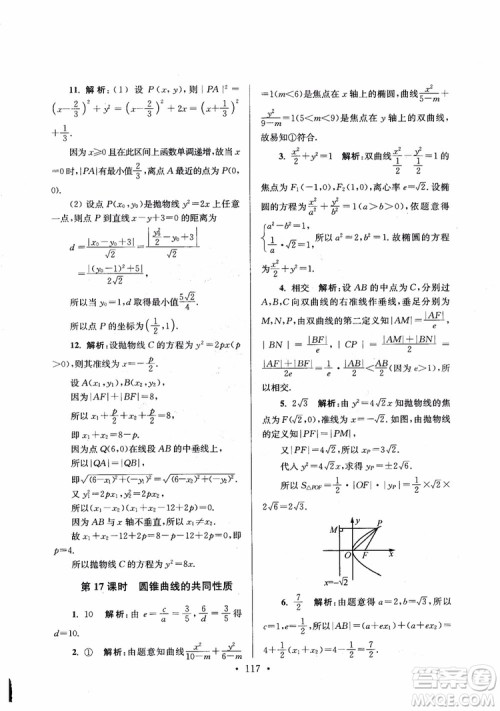 11. 解析：(1) 设 P(x, y)，则 |PA|² =
(x-2/3)²+y²=(x-2/3)²+2x=(x+1/3)²+
1/3.
因为 x≥0 且在此区间上函数单调递增，故当 x=
0 时，|PA| 有最小值，离点 A 最近的点的坐标为(0,
0).
(2) 设点 P(x₀, y₀) 是抛物线 y²=2x 上任意
一点，则 P 到直线 x-y+3=0 的距离为
d=|x₀-y₀+3|/√2=|y₀²/2-y₀+3|/√2=
|(y₀-1)²+5|/2√2,
所以当 y₀=1 时，d 取得最小值 5√2/4.
所以点 P 的坐标为(1/2, 1).
12. 解析：设抛物线 C 的方程为 y²=2px(p
>0)，则其准线为 x=-p/2.
设 A(x₁, y₁)，B(x₂, y₂),
因为|AF|+|BF|=8,
所以 x₁+p/2+x₂+p/2=8，即 x₁+x₂=8-p.
因为点 Q(6,0)在线段 AB 的中垂线上，
所以 |QA|=|QB|,
即√((6-x₁)²+y₁²)=√((6-x₂)²+y₂²),
所以(x₁-x₂)(x₁+x₂-12+2p)=0.
因为 AB 与 x 轴不垂直，所以 x₁≠x₂.
故 x₁+x₂-12+2p=8-p-12+2p=0，即 p
=4.
所以抛物线方程为 y²=8x.
第 17 课时 圆锥曲线的共同性质
1. 10 解析：e=c/a=4/5, 6/d=3/5，所以
d=10.
2. ① 解析：由题意知曲线 x²/(10-m)+y²/(6-m)
=1(m<6)是焦点在 x 轴上的椭圆，曲线 x²/(5-m)+
y²/(9-m)=1(5<m<9)是焦点在 y 轴上的双曲线，
故易知①正确.
3. x²/2+y²=1 解析：双曲线
的焦点为 F₁(-1,0)，F₂(1,0)，离心率 e=√2. 设椭
圆的方程为 x²/a²+y²/b²=1(a>b>0)，依题意得
a²-b²=1,
1/a·√2=1. 所以 a²=2，b²=1. 故椭圆的方程为 x²/2+
y²=1.
4. 相交 解析：设以 AB 为直径的圆的圆心为
由双曲线的第二定义知 |AM|=|AF|/e,
|BN|=|BF|/e
所以相交.
5. 2√3 解析：由 y²=4√2x 知抛物线的焦点
为 F(√2,0)，准线方程为 x=-√2. 如图，由抛物线定
义知 |PF|=|PM|,
又 |PF|=4√2，所以 xP=3√2.
代入 y²=4√2x，求得 yP=2√6.
所以 S△POF=1/2·|OF|·|yP|=1/2×√2×
2√6=2√3.
y
M
P
O
F
x
-√2
6. 7/2 解析：由题意可知 |AF|+|BF|=7. 所
以 |AF|+|BF|=(a+ex₁)+(a+ex₂)=2a+
· 117 ·
答案圈
MXQE.COM